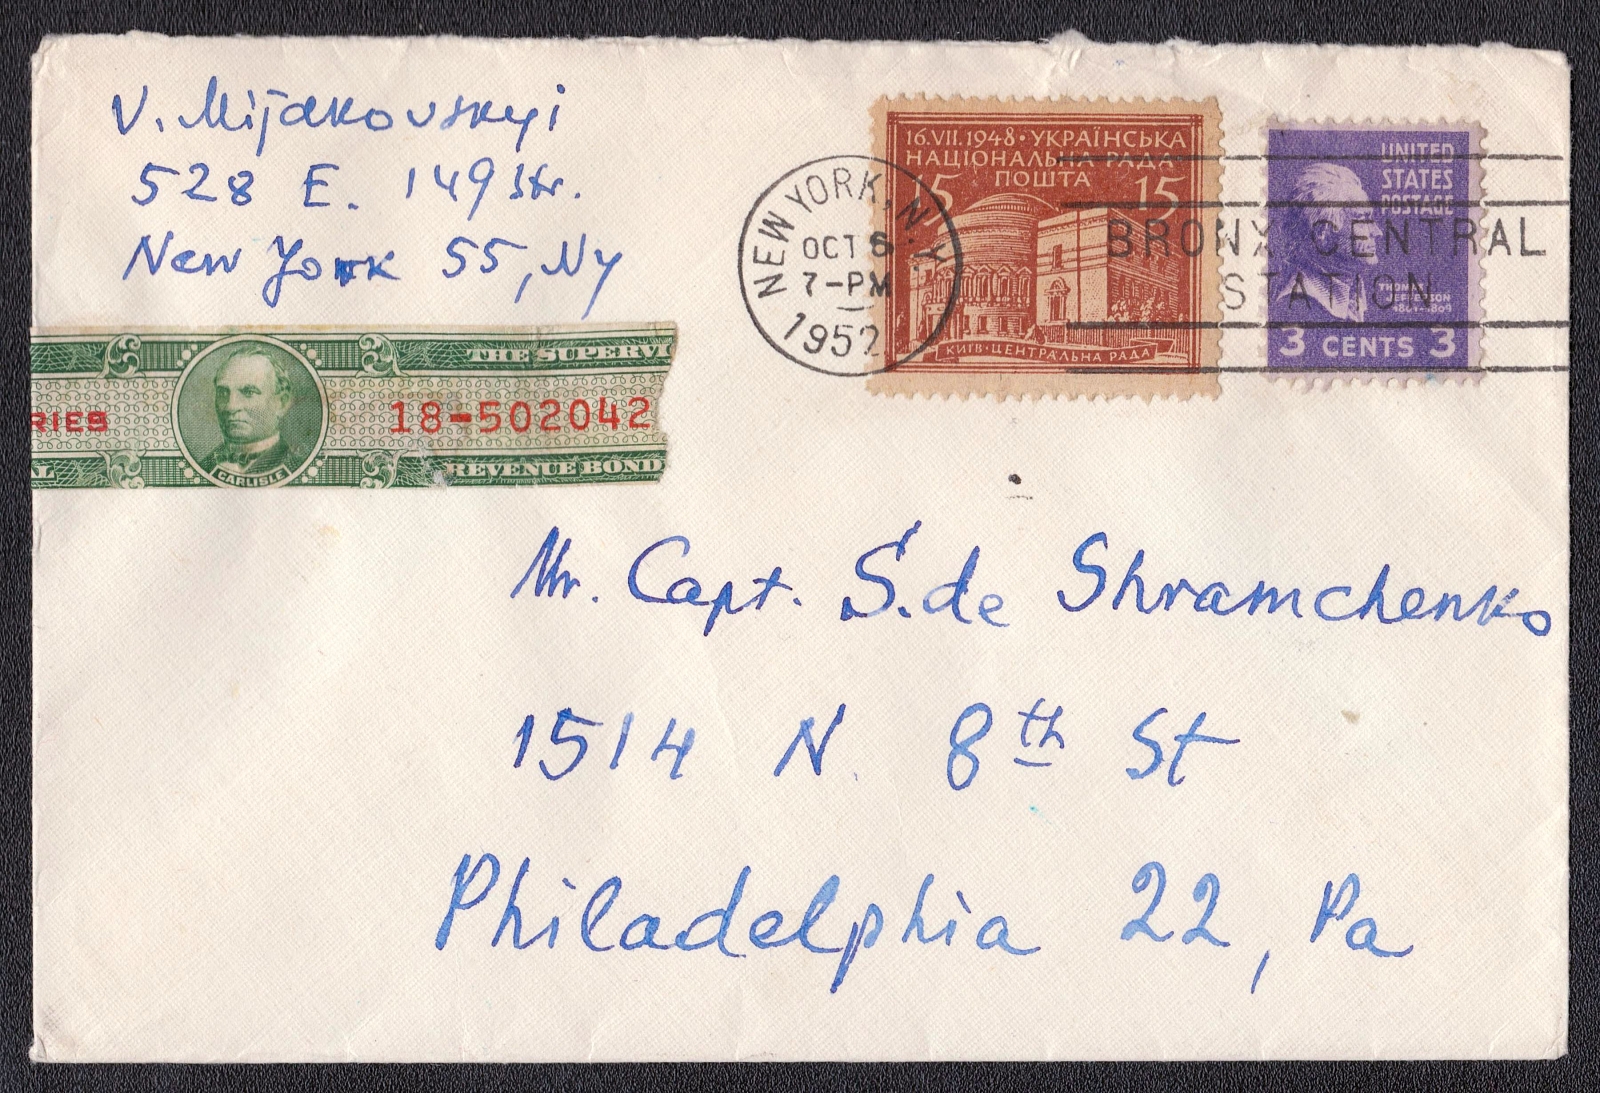 V. Mijakovskyi
528 E. 149 Str.
New York 55, Ny
16.VII.1948 · УКРАЇНСЬКА
НАЦІОНАЛЬНА РАДА
ПОШТА
15 15
КИЇВ · ЦЕНТРАЛЬНА РАДА
UNITED
STATES
POSTAGE
THOMAS
JEFFERSON
1801-1809
3 CENTS 3
NEW YORK, N.Y.
OCT 6
7-PM
1952
BRONX CENTRAL
STATION
THE SUPERVI
RIES
18-502042
CARLISLE
REVENUE BOND
Mr. Capt. S. de Shramchenko
1514 N. 8th St
Philadelphia 22, Pa